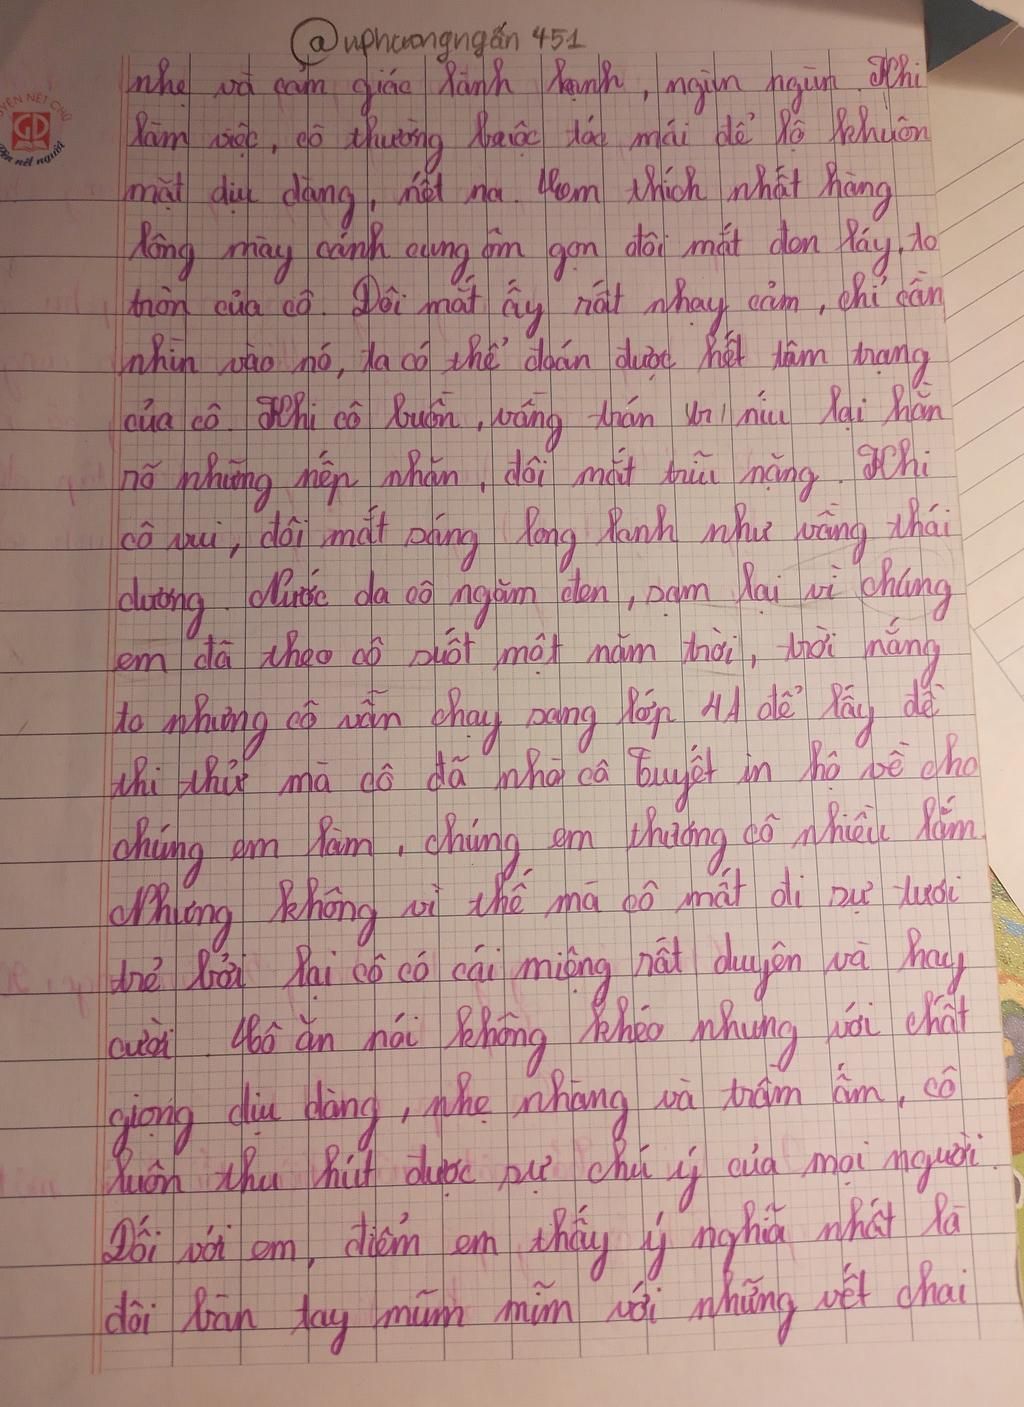 @uphuongngấn 451
YỆN NÉT CHỮ
GD
rèn nết người
nhẹ và cảm giác lành lạnh, ngùn ngùn. Khi
làm việc, cô thường buộc tóc mái để lộ khuôn
mặt dịu dàng, nết na. Em thích nhất hàng
lông mày cánh cung ôm gọn đôi mắt đen láy, to
tròn của cô. Đôi mắt ấy rất nhạy cảm, chỉ cần
nhìn vào nó, ta có thể đoán được hết tâm trạng
của cô. Khi cô buồn, vầng trán níu lại hằn
rõ những nếp nhăn, đôi mắt trĩu nặng. Khi
cô vui, đôi mắt sáng long lanh như vầng thái
dương. Nước da cô ngăm đen, sạm lại vì chúng
em đã theo cô suốt một năm trời, trời nắng
to nhưng cô vẫn chạy sang lớp 4A để lấy đề
thi thử mà cô đã nhờ cô Tuyết in hộ về cho
chúng em làm, chúng em thương cô nhiều lắm.
Nhưng không vì thế mà cô mất đi sự tươi
trẻ bởi lại cô có cái miệng rất duyên và hay
cười. Cô ăn nói không khéo nhưng với chất
giọng dịu dàng, nhẹ nhàng và trầm ấm, cô
luôn thu hút được sự chú ý của mọi người.
Đối với em, điểm em thấy ý nghĩa nhất là
đôi bàn tay mũm mĩm với những vết chai